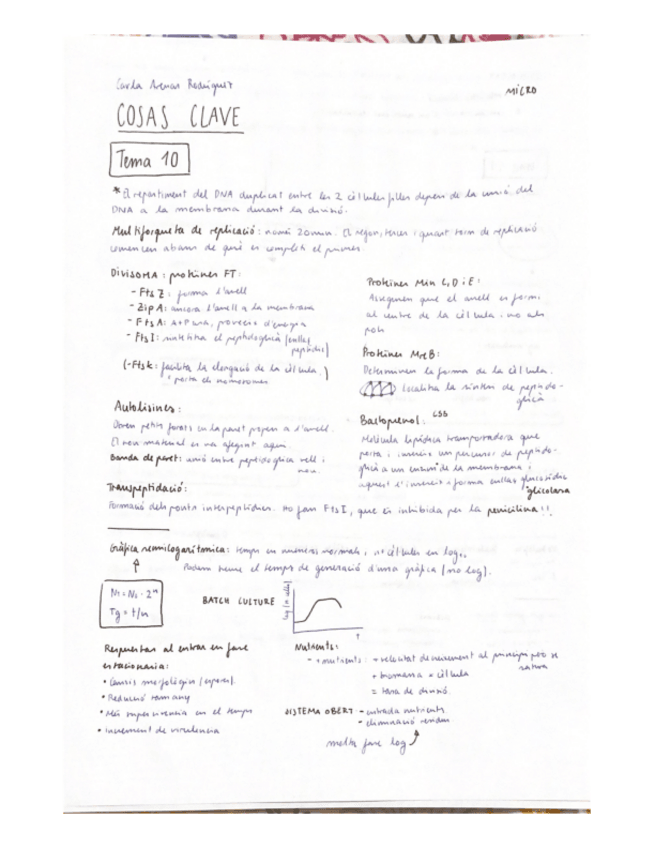 Carla Arenas Rodríguez
MICRO
COSAS CLAVE
Tema 10
* El repartiment del DNA duplicat entre les 2 cèl·lules filles depen de la unió del
DNA a la membrana durant la divisió.
Multiforqueta de replicació: només 20min. El segon, tercer i quart torn de replicació
comencen abans de què es completi el primer.
DIVISOMA: proteïnes FT:
- Fts Z: forma l'anell
- Zip A: ancora l'anell a la membrana
- Fts A: ATPasa, proveeix d'energia
- Fts I: sintetitza el peptidoglicà (enllaç
peptídic)
(-Ftsk: facilita la elongació de la cèl·lula
i porta els cromosomes)
Proteïnes Min C, D i E:
Asseguren que el anell es formi
al centre de la cèl·lula i no als
pols
Proteïnes MreB:
Determinen la forma de la cèl·lula.
localitza la síntesi de peptido-
glicà
Autolisines:
Obren petits forats en la paret propera a l'anell.
El nou material es va afegint aquí.
Banda de paret: unió entre peptidoglicà vell i
nou.
Bactoprenol: C55
Molècula lipídica transportadora que
porta i insereix un precursor de peptido-
glicà a un enzim de la membrana i
aquest l'insereix i forma enllaç glucosídic
glicolasa
Transpeptidació:
Formació dels ponts interpeptídics. Ho fan FtsI, que és inhibida per la penicilina!!
Gràfica semilogarítmica: temps en números normals, nº cèl·lules en log.
Podem treure el temps de generació d'una gràfica (no log).
Nt = No · 2ⁿ
Tg = t/n
BATCH CULTURE
log (n cells)
t
Respuestas al entrar en fase
estacionaria:
• Canvis morfològics (espores).
• Reducció tamany
• Més supervivencia en el temps
• Increment de virulencia
Nutrients:
- + nutrients: + velocitat de creixement al principi però se
satura
+ biomassa x cèl·lula
= taxa de divisió.
SISTEMA OBERT - entrada nutrients
- eliminació residus
molta fase log